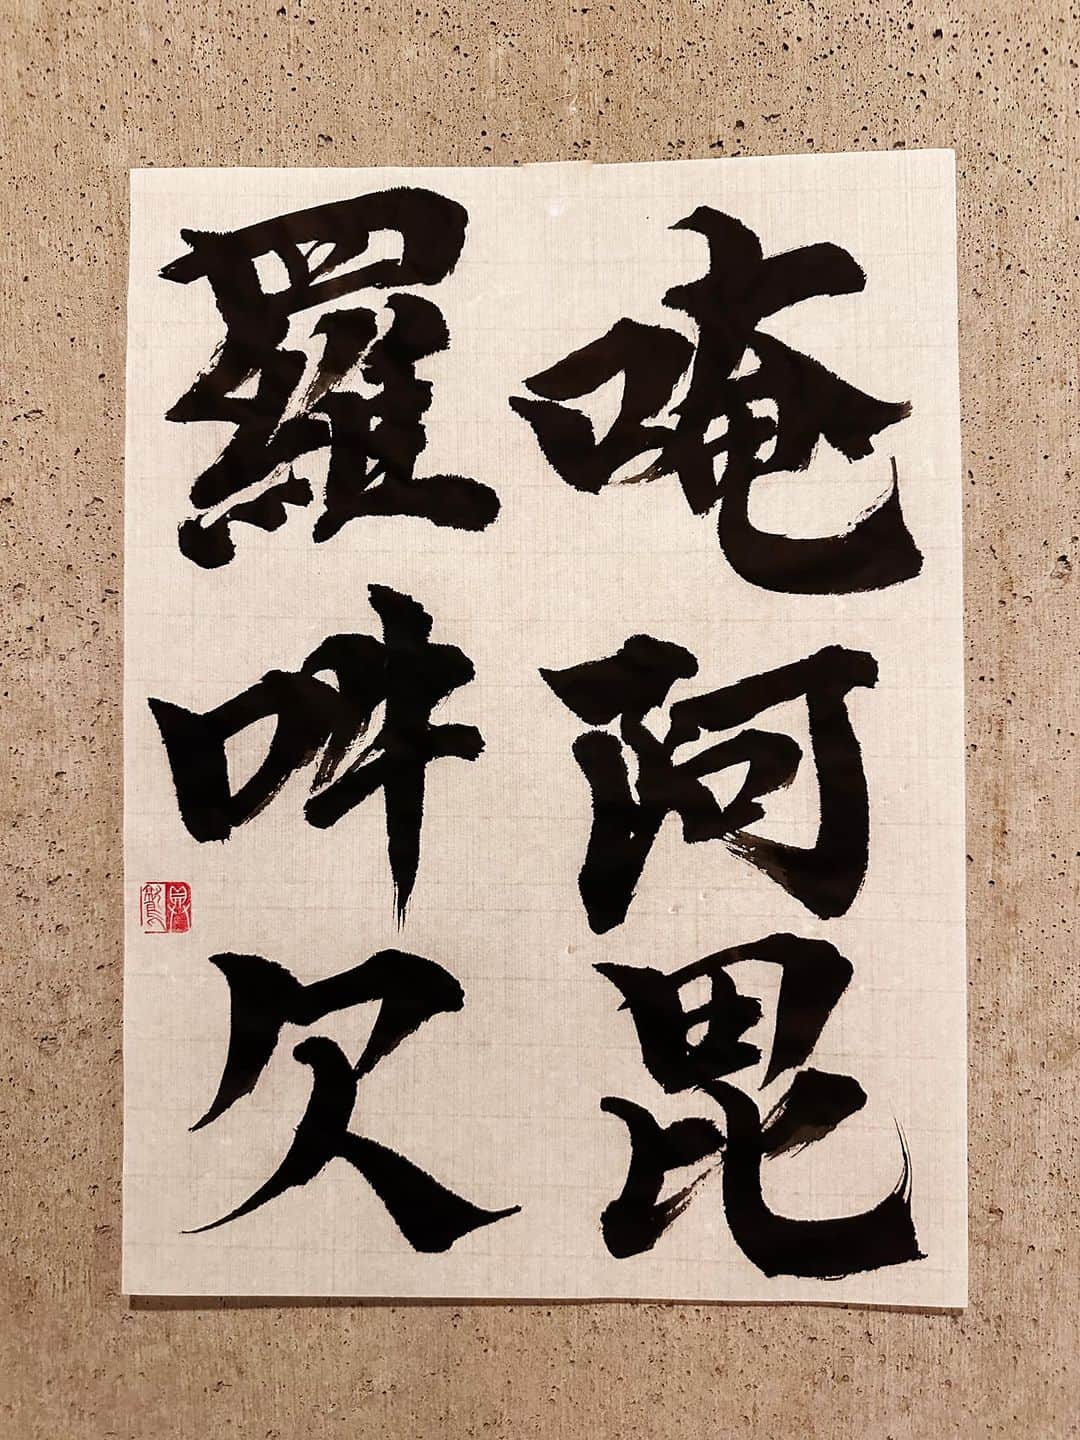 唵阿毘
羅吽欠